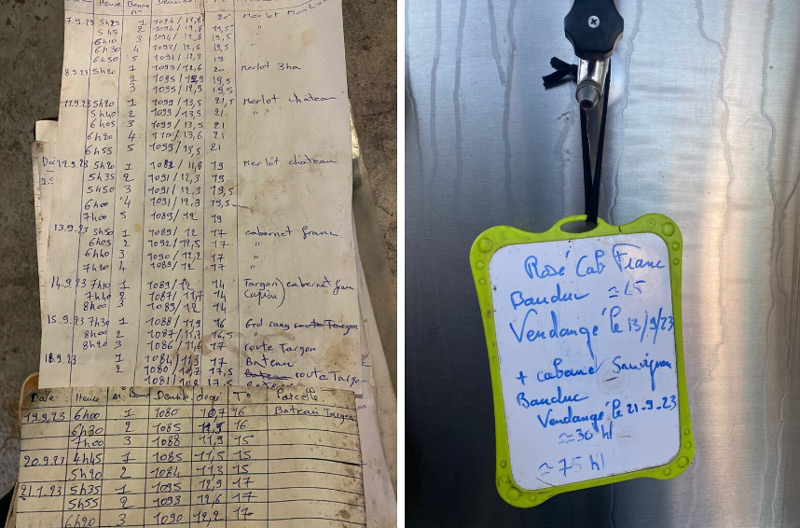 7.9.23 5h25 1 1094/12,8 20° Merlot
5h45 2 1094/12,8 19,5° "
6h10 3 1094/12,8 19,5 "
6h30 4 1093/12,6 19,5 "
6h50 5 1091/12,3 19,5
8.9.23 5h20 1 1093/12,6 20 Merlot 3ha
2 1095/12,9 19,5
3 1095/12,9 19,5
11.9.23 5h20 1 1099/13,5 21,5 Merlot chateau
5h40 2 1099/13,5 21 " "
6h05 3 1099/13,5 21
6h20 4 13,6 21
6h55 5 1099/13,5 21
12.9.23 5h20 1 1089/11,8 19 Merlot château
5h35 2 1091/12,3 19
5h50 3 1091/12,3 19,5
6h00 4 1091/12,3 19,5
7h00 5 1089/12 19
13.9.23 5h50 1 1089/12 17 cabernet franc
6h05 2 1092/12,5 17 "
6h40 3 1090/12,2 17 "
7h30 4 1089/12 17 "
14.9.23 7h10 1 1089/12 14 Targon) cabernet fran
7h40 2 1087/11,7 14
8h00 3 1089/12 14
15.9.23 7h30 1 1088/11,9 16 route Targon
8h00 2 1087/11,7 16,5
8h20 3 1086/11,6 17 route Targon
18.9.23 1 1084/11,3 17 Bateau
2 1080/10,7 17,5 Bateau route Targo
1081 17,5
Date Heure n° Densité degré T° Parcelle
19.9.23 6h00 1 1080 10,7 16 Bateau Targon
6h30 2 1085 11,5 16
7h00 3 1088 11,9 15
20.9.23 4h45 1 1085 11,5 15
5h20 2 1084 11,3 15
5h35 1 1095 12,9 17
5h55 2 1093 12,6 17
6h20 3 1090 12,2 17
Rosé Cab Franc
Bauduc ≈ 45
Vendangé le 13/9/23
+ cabernet Sauvignon
Bauduc
Vendangé le 21-9-23
≈ 30 hl
≈ 75 hl